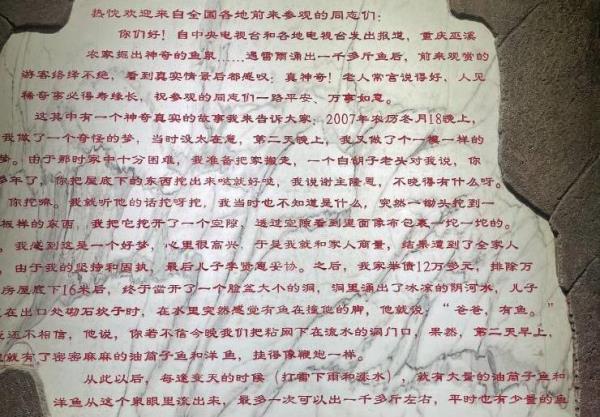 热忱欢迎来自全国各地前来参观的同志们：
你们好！自中央电视台和各地电视台发出报道，重庆巫溪
农家挖出神奇的鱼泉……遇雷雨涌出一千多斤鱼后，前来观赏的
游客络绎不绝，看到真实情景后都感叹：真神奇！老人常言说得好，人见
稀奇事必得寿缘长，祝参观的同志们一路平安、万事如意。
这其中有一个神奇真实的故事我来告诉大家，2007年农历冬月18晚上，
我做了一个奇怪的梦，当时没太在意，第二天晚上，我又做了个一模一样的
梦。由于那时家中十分困难，我准备把家搬走，一个白胡子老头对我说，你
多年了，你把屋底下的东西挖出来哒就好哒，我说谢主隆恩，不晓得有什么呀。
你挖嘛。我就听他的话挖呀挖，我当时也不知道是什么，突然一锄头挖到一
板样的东西，我把它挖开了一个空隙，透过空隙看到里面像布包裹一坨一坨的。
，我感到这是一个好梦，心里很高兴，于是我就和家人商量，结果遭到了全家人
，由于我的坚持和固执，最后儿子李贤恩妥协。之后，我家举债12万多元，排除万
房屋底下16米后，终于凿开了一个脸盆大小的洞，洞里涌出了冰凉的阴河水，儿子
在出口处砌石坎子时，在水里突然感觉有鱼在撞他的脚，他就说：“爸爸，有鱼。”
还不相信，他说，你若不信今晚我们把粘网下在流水的洞门口，果然，第二天早上，
就有了密密麻麻的油筒子鱼和洋鱼，挂得像鞭炮一样。
从此以后，每逢变天的时候（打雷下雨和涨水），就有大量的油筒子鱼和
洋鱼从这个泉眼里流出来，最多一次可以出一千多斤左右，平时也有少量的鱼